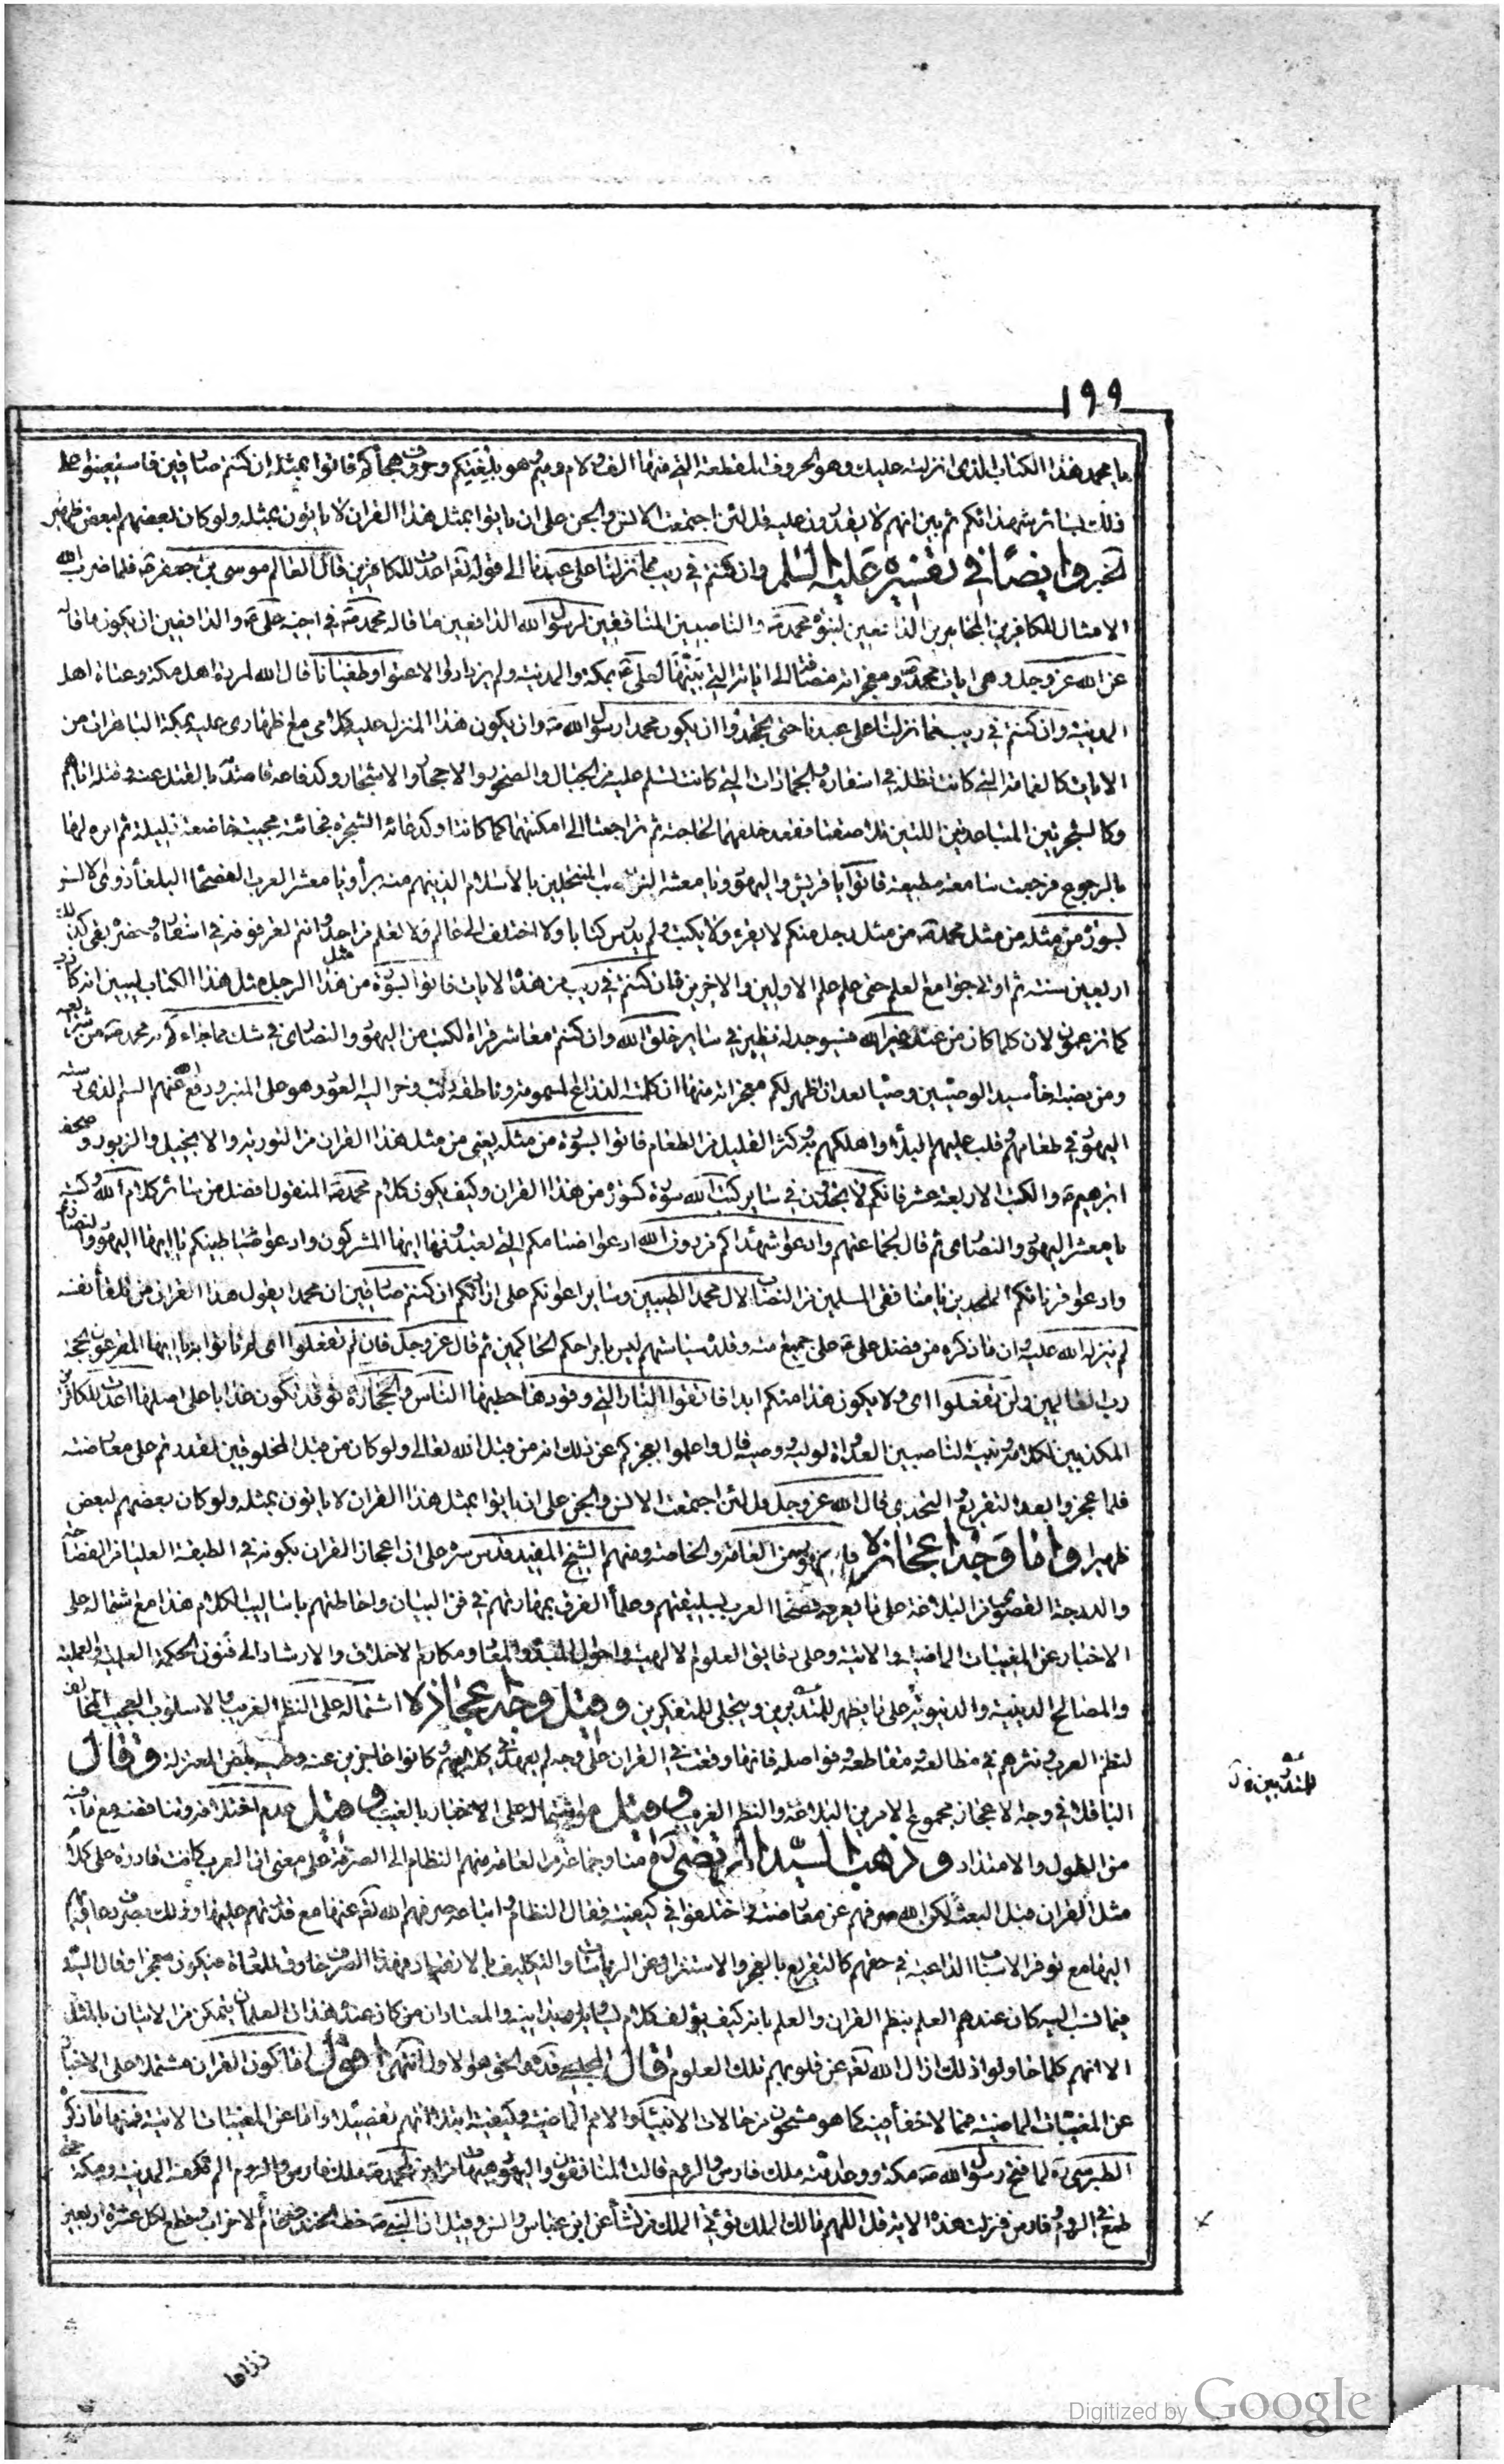 ١٩٩
يا محمد هذا الكتاب الذى انزلته عليك وهو الحروف المقطعة التى منها الف ولام وميم وهو بلغتكم وحروف هجائكم فاتوا بمثله ان كنتم صادقين فاستعينوا على
ذلك بسائر شهدائكم ثم بين انهم لا يقدرون عليه قل لئن اجتمعت الانس والجن على ان ياتوا بمثل هذا القران لا ياتون بمثله ولو كان بعضهم لبعض ظهير
الخبر وايضًا فى تفسيره عليه السلم وان كنتم فى ريب مما نزلنا على عبدنا الى قوله تعا اعدت للكافرين قال العالم موسى بن جعفر ع فلما ضرب الله
الامثال للكافرين المجاهرين الدافعين لنبوة محمد ص والناصبين المنافقين لرسول الله الدافعين ما قاله محمد ص فى اخيه على ع والدافعين ان يكون ما قاله
عن الله عز وجل وهى ايات محمد ص ومعجزاته مضافة الى اياته التى بينها لعلى ع بمكة والمدينة ولم يزدادوا الا عتوا وطغيانا قال الله لمردة اهل مكة وعتاة اهل
المدينة وان كنتم فى ريب مما نزلنا على عبدنا حتى تجحدوا ان يكون محمد رسول الله ص وان يكون هذا المنزل عليه كلامى مع اظهارى عليه بمكة الباهرات من
الايات كالغمامة التى كانت تظله فى اسفاره والجمادات التى كانت تسلم عليه من الجبال والصخور والاحجار والاشجار وكدفاعه قاصديه بالقتل عنه وقتله اياهم
وكالشجرتين المتباعدتين اللتين تلاصقتا فقعد خلفهما لحاجته ثم تراجعتا الى امكنتهما كما كانتا وكدعائه الشجرة فجائته مجيبة خاضعة ذليلة ثم امره لها
بالرجوع فرجعت سامعة مطيعة فاتوا يا قريش واليهود ويا معشر النواصب المنتحلين بالاسلام الذينهم منه براء ويا معشر العرب الفصحاء البلغاء ذوى الالسن
بسورة من مثله من مثل محمد ص من مثل رجل منكم لا يقرء ولا يكتب ولم يدرس كتابا ولا اختلف الى عالم ولا تعلم من احد وانتم تعرفونه فى اسفاره وحضره بقى كذلك
اربعين سنة ثم اوتى جوامع العلم حتى علم علم الاولين والاخرين فان كنتم فى ريب من هذه الايات فاتوا بسورة من مثل هذا الرجل مثل هذا الكتاب ليبين انه كاذب
كما تزعمون لان كلما كان من عند غير الله فسيوجد له نظير فى ساير خلق الله وان كنتم معاشر قراء الكتب من اليهود والنصارى فى شك مما جاءكم به محمد ص من شرايعه
ومن نصبه اخاه سيد الوصيين وصيا بعد ان اظهر لكم معجزاته منها ان كلمته الذراع المسمومة وناطقه ذئب وحن اليه العود وهو على المنبر ودفع الله عنهم السم الذى دسته
اليهود فى طعامهم وقلب عليهم البلاء واهلكهم به وكثر القليل من الطعام فاتوا بسورة من مثله يعنى من مثل هذا القران من التورية والانجيل والزبور وصحف
ابراهيم ع والكتب الاربعة عشر فانكم لا تجدون فى ساير كتب الله سورة كسورة من هذا القران وكيف يكون كلام محمد ص المتقول افضل من سائر كلام الله وكتبه
يا معشر اليهود والنصارى ثم قال لجماعتهم وادعوا شهداءكم من دون الله ادعوا اصنامكم التى تعبدونها ايها المشركون وادعوا شياطينكم يا ايها اليهود والنصارى
وادعوا قرنائكم الملحدين يا منافقى المسلمين من النصاب لال محمد الطيبين وسائر اعوانكم على ارائكم ان كنتم صادقين ان محمدا يقول هذا القران من تلقاء نفسه
لم ينزله الله عليه وان ما ذكره من فضل على ع على جميع امته وقلده سياستهم ليس بامر احكم الحاكمين ثم قال عز وجل فان لم تفعلوا اى لم تاتوا يا ايها المقرعون بحجة
رب العالمين ولن تفعلوا اى ولا يكون هذا منكم ابدا فاتقوا النار التى وقودها حطبها الناس والحجارة توقد تكون عذابا على اهلها اعدت للكافرين
المكذبين لكلامه ونبيه الناصبين العداوة لوليه ووصيه قال واعلموا بعجزكم عن ذلك انه من قبل الله تعالى ولو كان من قبل المخلوقين لقدرتم على معارضته
فلما عجزوا بعد التقريع والتحدى قال الله عز وجل قل لئن اجتمعت الانس والجن على ان ياتوا بمثل هذا القران لا ياتون بمثله ولو كان بعضهم لبعض
ظهيرا واما وجه اعجازه فالجمهور من العامة والخاصة ومنهم الشيخ المفيد قدس سره على ان اعجاز القران بكونه فى الطبقة العليا من الفصاحة
والدرجة القصوى من البلاغة على ما يعرفه فصحاء العرب بسليقتهم وعلماء الفرق بمهارتهم فى فن البيان واحاطتهم باساليب الكلام هذا مع اشتماله على
الاخبار عن المغيبات الماضية والاتية وعلى دقايق العلوم الالهية واحوال المبدء والمعاد ومكارم الاخلاق والارشاد الى فنون الحكمة العلمية والعملية
والمصالح الدينية والدنيوية على ما يظهر للمتدبرين ويتجلى للمتفكرين وقيل وجه اعجازه اشتماله على النظم الغريب والاسلوب العجيب المخالف
لنظم العرب ونثرهم فى مطالعه ومقاطعه وفواصله فانها وقعت فى القران على وجه لم يعهد فى كلامهم وكانوا عاجزين عنه وعليه بعض المعتزلة وقال
الباقلانى وجه الاعجاز مجموع الامرين البلاغة والنظم الغريب وقيل هو اشتماله على الاخبار بالغيب وقيل عدم اختلافه وتناقضه مع ما فيه
من الطول والامتداد وذهب السيد المرتضى ره منا وجماعة من العامة منهم النظام الى الصرفة على معنى ان العرب كانت قادرة على كلام
مثل القران قبل البعثة لكن الله صرفهم عن معارضته واختلفوا فى كيفيته فقال النظام واتباعه صرفهم الله تعا عنها مع قدرتهم عليها وذلك بصرف دواعيهم
اليها مع توفر الاسباب الداعية فى حقهم كالتقريع بالعجز والاستنزال عن الرياسات والتكليف بالانقياد فهذا الصرف خارق للعادة فيكون معجزا وقال السيد
فيما نسب اليه كان عندهم العلم بنظم القران والعلم بانه كيف يؤلف كلام يساويه او يدانيه والمعتاد ان من كان عنده هذان العلمان يتمكن من الاتيان بالمثل
الا انهم كلما حاولوا ذلك ازال الله تعا عن قلوبهم تلك العلوم قال المجلسى قده والحق هو الاول انتهى اقول اما كون القران مشتملا على الاخبار
عن المغيبات الماضية فمما لا خفاء فيه كما هو مشحون من حالات الانبياء والامم الماضية وكيفية ابتلائهم تفصيلا واما عن المغيبات الاتية فمنها ما ذكره
الطبرسى ره لما فتح رسول الله ص مكة ووعد امته ملك فارس والروم قالت المنافقون واليهود هيهات من اين لمحمد ص ملك فارس والروم الم تكفه المدينة ومكة حتى
طمع فى الروم وفارس فنزلت هذه الاية قل اللهم مالك الملك تؤتى الملك من تشاء عن ابن عباس وانس وقيل ان النبى ص خط الخندق عام الاحزاب وقطع لكل عشرة اربعين
للمتدبرين
ذراعا
Digitized by Google